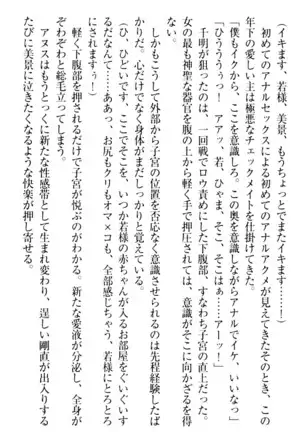 (イキます……! 若様、美景、もうちょっとでまたイキます……!)
初めてのアナルセックスによる初めてのアナルアクメが見えてきたそのとき、この
年下の愛しい主は極悪なチェックメイトを仕掛けてきた。
「僕もイクから、ここを意識しろ。この奥を意識しながらアナルでイケ、いいなっ」
「ひうううぅっ! アアッ、若、ひゃま、そこ、そこはぁ……アーッ!」
千明が狙ったのは、一回戦でロウ責めにした下腹部、すなわち子宮の直上だった。
女の最も神聖な器官を腹の上から軽く手で押圧されては、意識がそこに向かざるを得
ない。
しかもこうして外部から子宮の位置を否応なく意識させられるのは先程経験したば
かりだ。心だけでなく身体がまだしっかりと覚えている。
(ひ、ひどいです、ここでそこを、いつか若様の赤ちゃんが入るお部屋をぐいぐいす
るだなんて……ああっ、お尻もクリもオマ×コも、全部感じちゃう、若様にとろとろ
にされますぅ!)
軽く下腹部を押されるだけで子宮が悦ぶのがわかる。新たな愛液が分泌し、全身が
ぞわぞわと総毛立ってしまう。
アヌスはもうとっくに新たな性感帯として生まれ変わり、逞しい剛直が出入りする
たびに美景に泣きたくなるような快楽が押し寄せる。